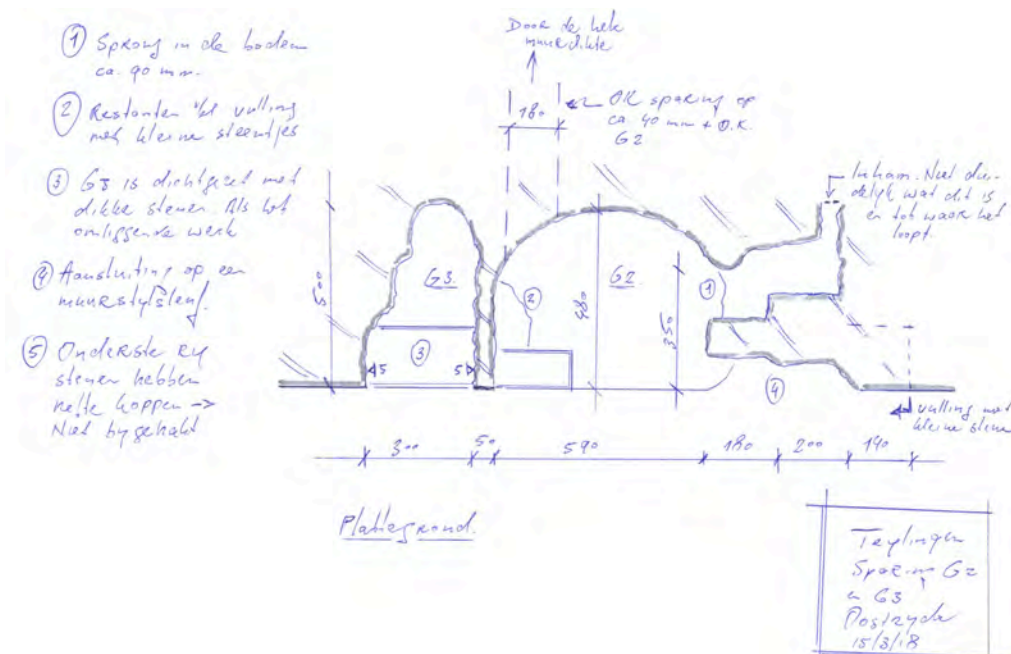 ① Sprong in de bodem
ca. 90 mm.
② Restanten v/d vulling
met kleine steentjes
③ G3 is dichtgezet met
dikke stenen. Als het
omliggende werk
④ Aansluiting op een
muurstylsleuf.
⑤ Onderste ry
stenen hebben
nette koppen →
Niet bygehakt
Door de hele
muurdikte
180
OK sparing op
ca. 40 mm + O.K.
G2
Inham. Niet dui-
delyk wat dit is
en tot waar het
loopt.
500
G3.
③
5
5
②
G2.
480
350
①
④
vulling met
kleine stenen
300
50
590
180
200
140
Plattegrond.
Teylingen
Sparing G2
en G3
Oostzyde
15/3/18